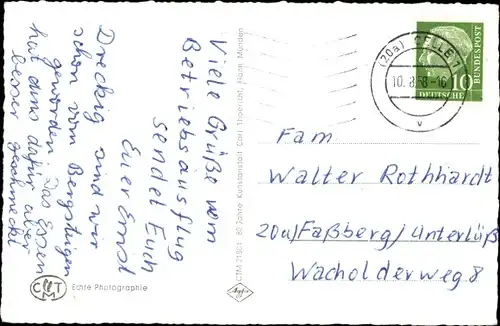 Viele Grüße vom
Betriebsausflug
sendet Euch
Euer Ernst
Dreckig sind wir
schon vom Bergsteigen
geworden. Das Essen
hat uns dafür aber
besser geschmeckt
CTM
Echte Photographie
80 Jahre Kunstanstalt Carl Thoericht, Hann. Münden
Agfa
(20a) CELLE 1
10.8.58-16
v
10
DEUTSCHE
BUNDESPOST
Fam
Walter Rothhardt
20a) Faßberg/Unterlüß
Wacholderweg 8